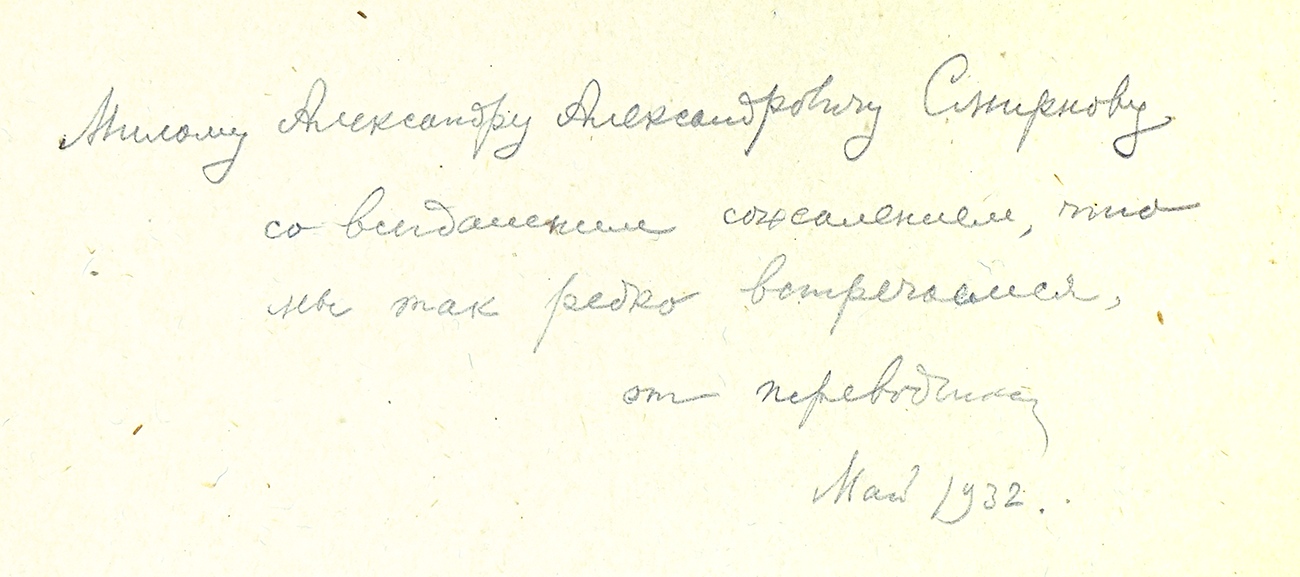 Милому Александру Александровичу Смирнову
со всегдашним сожалением, что
мы так редко встречаемся,
от переводчика
Май 1932.